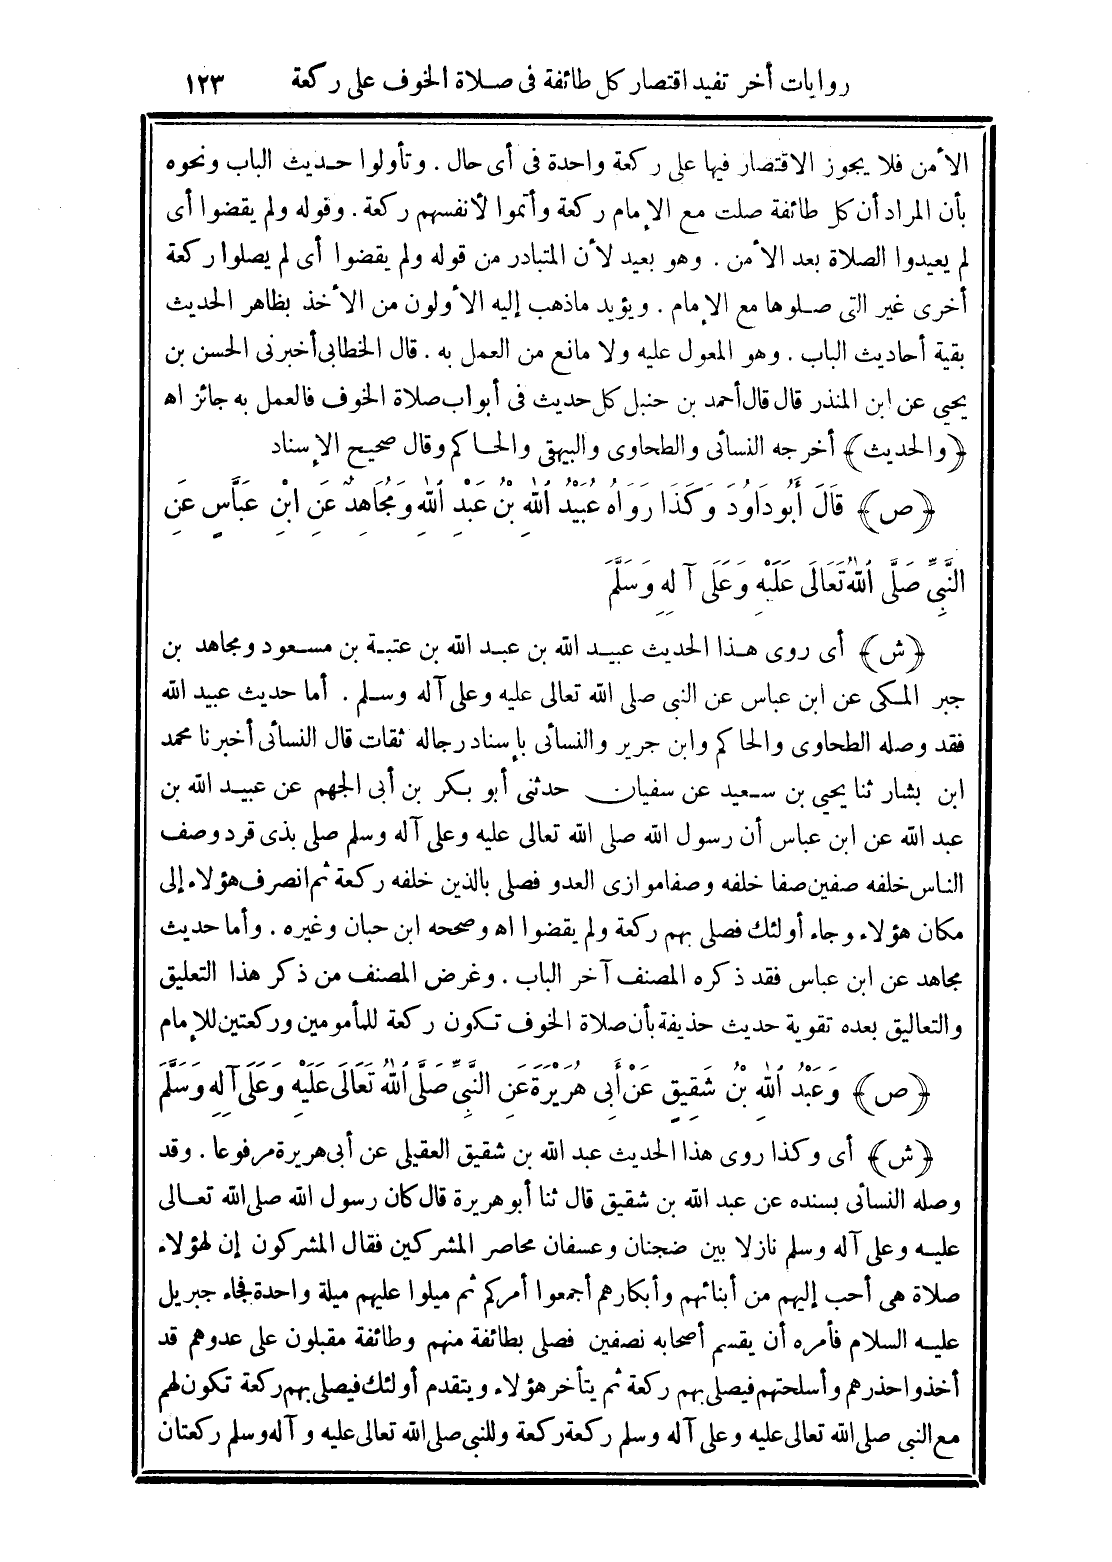 روايات أخر تفيد اقتصار كل طائفة فى صلاة الخوف على ركعة ١٢٣
الأمن فلا يجوز الاقتصار فيها على ركعة واحدة فى أى حال . وتأولوا حديث الباب ونحوه
بأن المراد أن كل طائفة صلت مع الإمام ركعة وأتموا لأنفسهم ركعة . وقوله ولم يقضوا أى
لم يعيدوا الصلاة بعد الأمن . وهو بعيد لأن المتبادر من قوله ولم يقضوا أى لم يصلوا ركعة
أخرى غير التى صلوها مع الإمام . ويؤيد ماذهب إليه الأولون من الأخذ بظاهر الحديث
بقية أحاديث الباب . وهو المعول عليه ولا مانع من العمل به . قال الخطابى أخبرنى الحسن بن
يحيى عن ابن المنذر قال قال أحمد بن حنبل كل حديث فى أبواب صلاة الخوف فالعمل به جائز اه
﴿والحديث﴾ أخرجه النسائى والطحاوى والبيهقى والحاكم وقال صحيح الإسناد
﴿ص﴾ قَالَ أَبُو دَاوُدَ وَكَذَا رَوَاهُ عُبَيْدُ اللهِ بْنُ عَبْدِ اللهِ وَمُجَاهِدٌ عَنِ ابْنِ عَبَّاسٍ عَنِ
النَّبِيِّ صَلَّى اللهُ تَعَالَى عَلَيْهِ وَعَلَى آلِهِ وَسَلَّمَ
﴿ش﴾ أى روى هذا الحديث عبيد الله بن عبد الله بن عتبة بن مسعود ومجاهد بن
جبر المكى عن ابن عباس عن النبى صلى الله تعالى عليه وعلى آله وسلم . أما حديث عبيد الله
فقد وصله الطحاوى والحاكم وابن جرير والنسائى بإسناد رجاله ثقات قال النسائى أخبرنا محمد
ابن بشار ثنا يحيى بن سعيد عن سفيان حدثنى أبو بكر بن أبى الجهم عن عبيد الله بن
عبد الله عن ابن عباس أن رسول الله صلى الله تعالى عليه وعلى آله وسلم صلى بذى قرد وصف
الناس خلفه صفين صفا خلفه وصفا موازى العدو فصلى بالذين خلفه ركعة ثم انصرف هؤلاء إلى
مكان هؤلاء وجاء أولئك فصلى بهم ركعة ولم يقضوا اه وصححه ابن حبان وغيره . وأما حديث
مجاهد عن ابن عباس فقد ذكره المصنف آخر الباب . وغرض المصنف من ذكر هذا التعليق
والتعاليق بعده تقوية حديث حذيفة بأن صلاة الخوف تكون ركعة للمأمومين وركعتين للإمام
﴿ص﴾ وَعَبْدُ اللهِ بْنُ شَقِيقٍ عَنْ أَبِى هُرَيْرَةَ عَنِ النَّبِيِّ صَلَّى اللهُ تَعَالَى عَلَيْهِ وَعَلَى آلِهِ وَسَلَّمَ
﴿ش﴾ أى وكذا روى هذا الحديث عبد الله بن شقيق العقيلى عن أبى هريرة مرفوعا . وقد
وصله النسائى بسنده عن عبد الله بن شقيق قال ثنا أبو هريرة قال كان رسول الله صلى الله تعالى
عليه وعلى آله وسلم نازلا بين ضجنان وعسفان محاصر المشركين فقال المشركون إن لهؤلاء
صلاة هى أحب إليهم من أبنائهم وأبكارهم أجمعوا أمركم ثم ميلوا عليهم ميلة واحدة فجاء جبريل
عليه السلام فأمره أن يقسم أصحابه نصفين فصلى بطائفة منهم وطائفة مقبلون على عدوهم قد
أخذوا حذرهم وأسلحتهم فيصلى بهم ركعة ثم يتأخر هؤلاء ويتقدم أولئك فيصلى بهم ركعة تكون لهم
مع النبى صلى الله تعالى عليه وعلى آله وسلم ركعة ركعة وللنبى صلى الله تعالى عليه و آله وسلم ركعتان